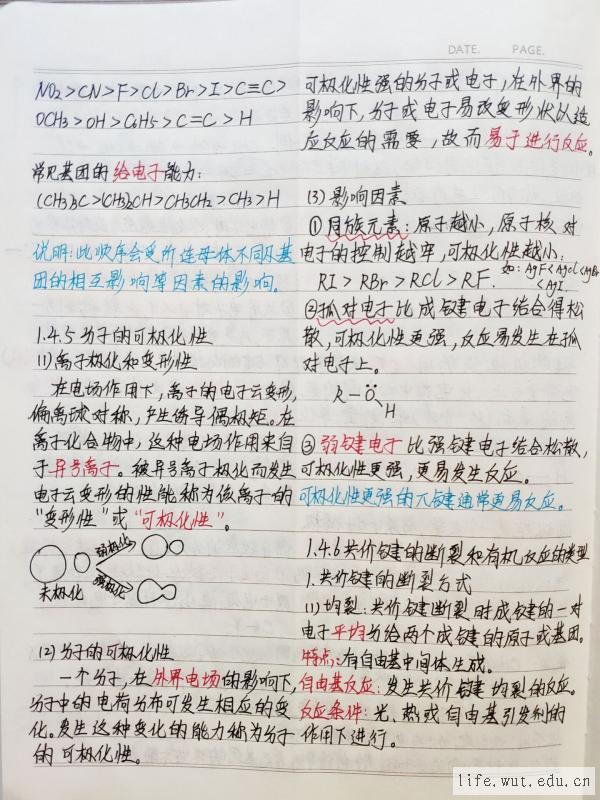 DATE. PAGE.
NO2>CN>F>Cl>Br>I>C≡C>
OCH3>OH>C6H5>C=C>H
常见基团的给电子能力:
(CH3)3C>(CH3)2CH>CH3CH2>CH3>H
说明:此顺序会受所连母体不同及基
团的相互影响等因素的影响。
1.4.5 分子的可极化性
(1)离子极化和变形性
在电场作用下,离子的电子云变形,
偏离球对称,产生诱导偶极矩。在
离子化合物中,这种电场作用来自
于异号离子。被异号离子极化而发生
电子云变形的性能称为该离子的
“变形性”或“可极化性”。
弱极化
未极化
强极化
(2)分子的可极化性
一个分子,在外界电场的影响下,
分子中的电荷分布可发生相应的变
化。发生这种变化的能力称为分子
的可极化性。
可极化性强的分子或电子,在外界的
影响下,分子或电子易改变形状以适
应反应的需要,故而易于进行反应。
(3)影响因素
①同族元素:原子越小,原子核对
电子的控制越牢,可极化性越小:
RI>RBr>RCl>RF.
如:AgF<AgCl<AgBr
<AgI.
②孤对电子比成键电子结合得松
散,可极化性更强,反应易发生在孤
对电子上。
R-O
H
③弱键电子比强键电子结合松散,
可极化性更强,更易发生反应。
可极化性更强的π键通常更易反应。
1.4.6 共价键的断裂和有机反应的类型
1.共价键的断裂方式
(1)均裂:共价键断裂时成键的一对
电子平均分给两个成键的原子或基团。
特点:有自由基中间体生成。
自由基反应:发生共价键均裂的反应。
反应条件:光、热或自由基引发剂的
作用下进行。
life.wut.edu.cn